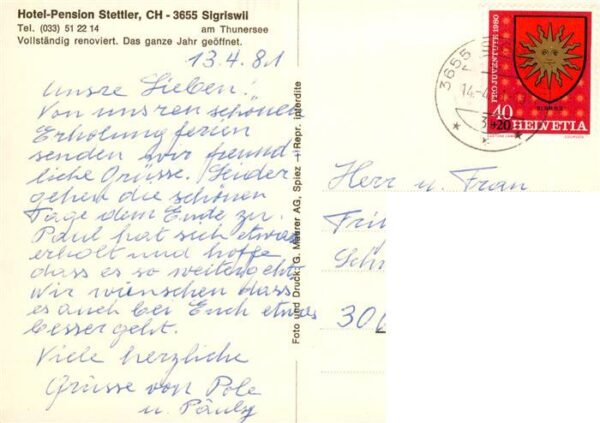 Hotel-Pension Stettler, CH - 3655 Sigriswil
Tel. (033) 51 22 14 am Thunersee
Vollständig renoviert. Das ganze Jahr geöffnet.
13.4.81
Unsre Lieben!
Von unsren schönen
Erholung ferien
senden wir freund
liche Grüsse. Leider
gehen die schönen
Tage dem Ende zu.
Paul hat sich etwas
erholt und hoffe
dass es so weitergeht
Wir wünschen dass
es auch bei Euch etwas
besser geht.
Viele herzliche
Grüsse von Pole
u.
Foto und Druck: G. Maurer AG, Spiez Repr. interdite
3655
14.-4
PRO JUVENTUTE 1980
40
+20
HELVETIA
Herr u. Frau
300